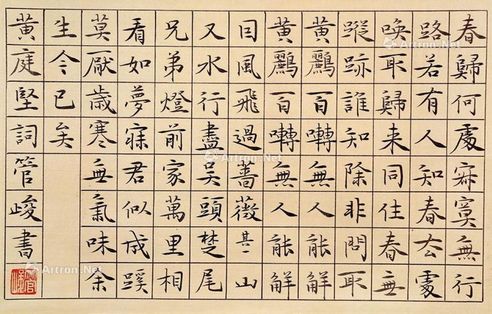 春歸何處寂寞無行
路若有人知春去處
喚取歸来同住春無
蹤跡誰知除非問取
黄鸝百囀無人能解
黄鸝百囀無人能解
因風飛過薔薇其二山
又水行盡吳頭楚尾
兄弟燈前家萬里相
看如夢寐君似成蹊
莫厭歲寒無氣味余
生今已矣
黄庭堅詞管峻書
Artron.Net